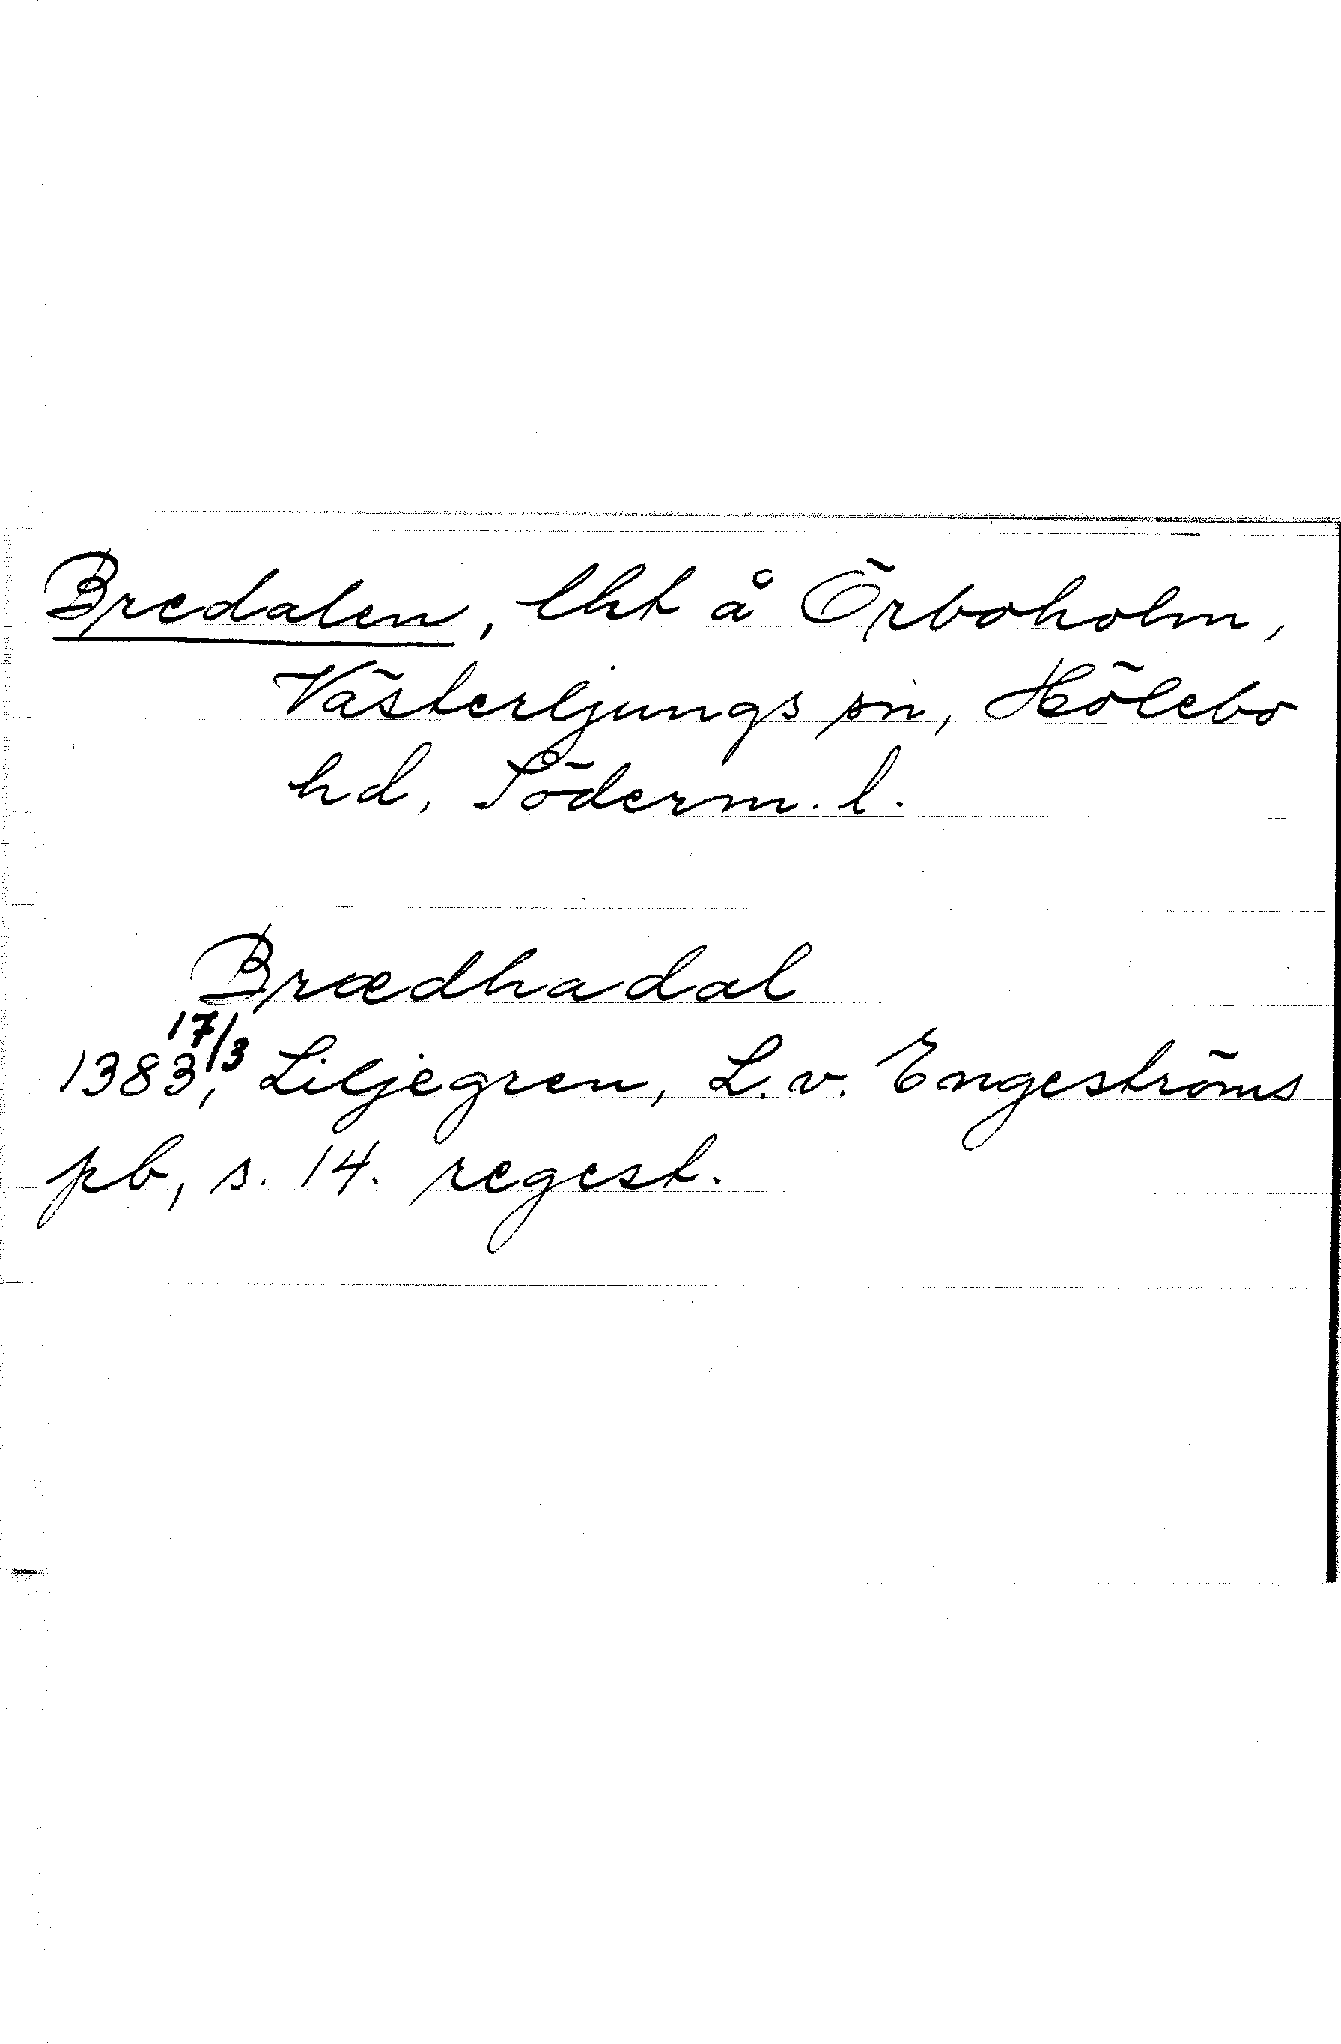 Bredalen, lht å Örboholm,
Västerljungs sn, Hölebo
hd, Söderm. l.
Brædhadal
1383 17/3, Liljegren, L. v. Engeströms
pb, s. 14. regest.